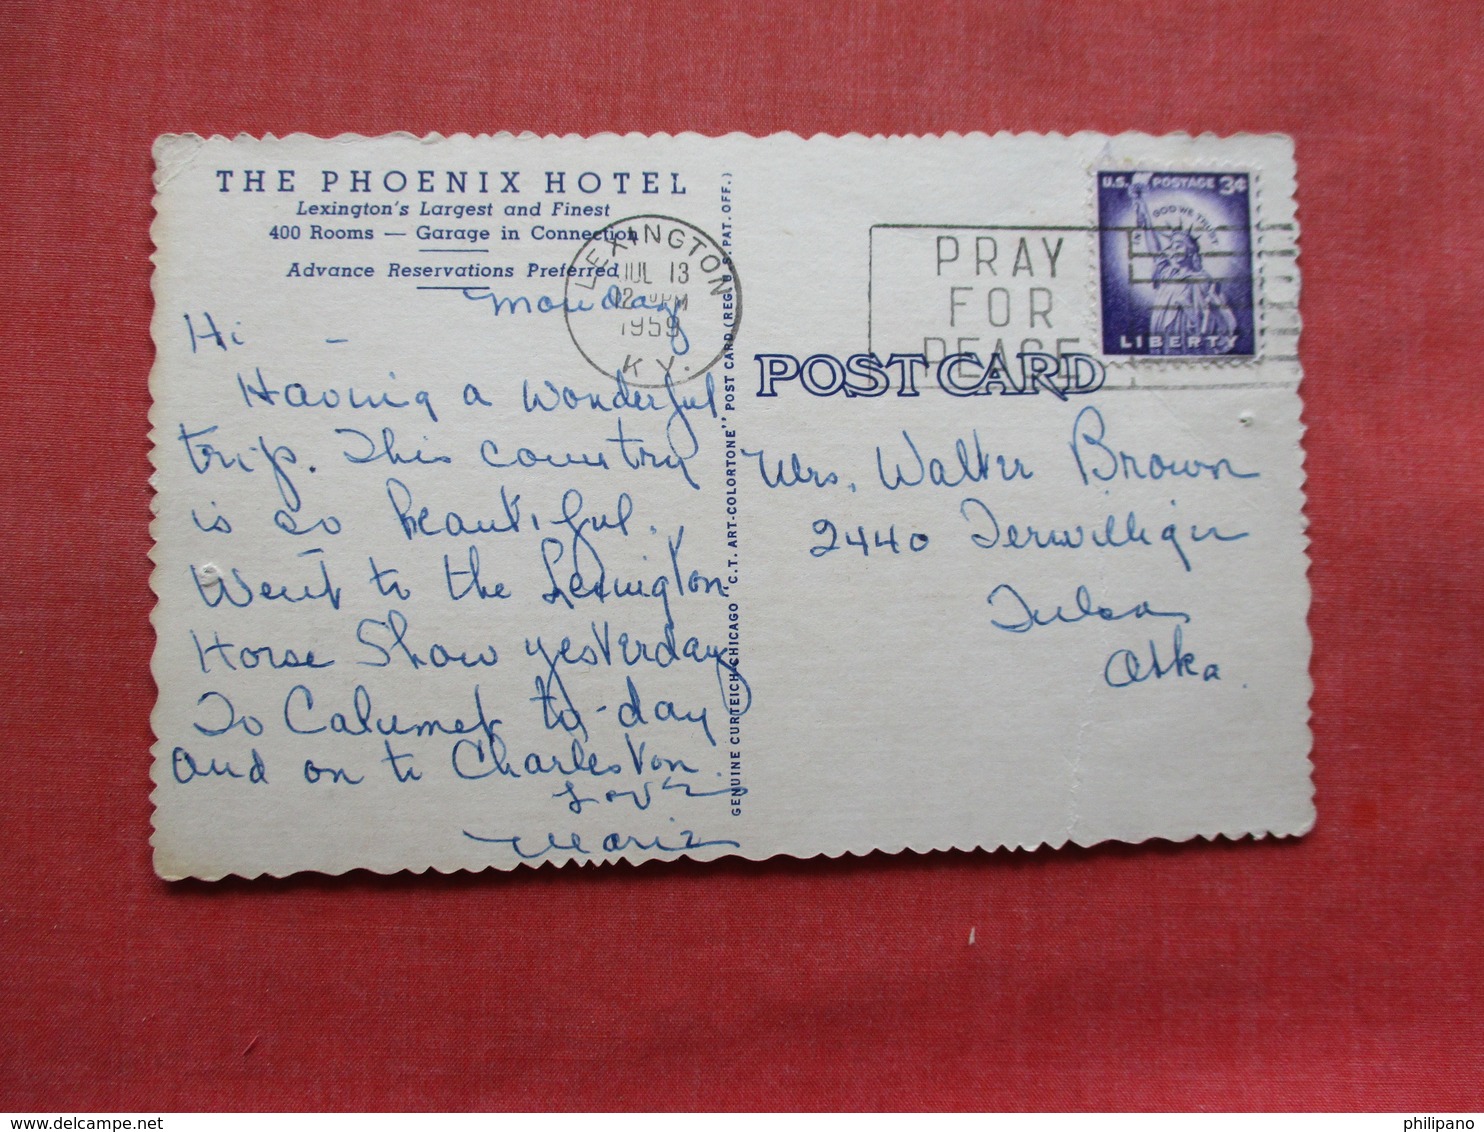 THE PHOENIX HOTEL
Lexington's Largest and Finest
400 Rooms — Garage in Connection
Advance Reservations Preferred
Monday
Hi –
Having a wonderful
trip. This country
is so beautiful.
Went to the Lexington
Horse Show yesterday
To Calumet to-day
and on to Charleston.
Love
Marie
LEXINGTON
JUL 13
12 PM
1959
KY.
GENUINE CURTEICH-CHICAGO "C.T. ART-COLORTONE" POST CARD (REG. U.S. PAT. OFF.)
PRAY
FOR
PEACE
U.S. POSTAGE 3¢
IN GOD WE TRUST
LIBERTY
POST CARD
Mrs. Walter Brown
2440 Terwilliger
Tulsa
Okla.
delcampe.net
philipano